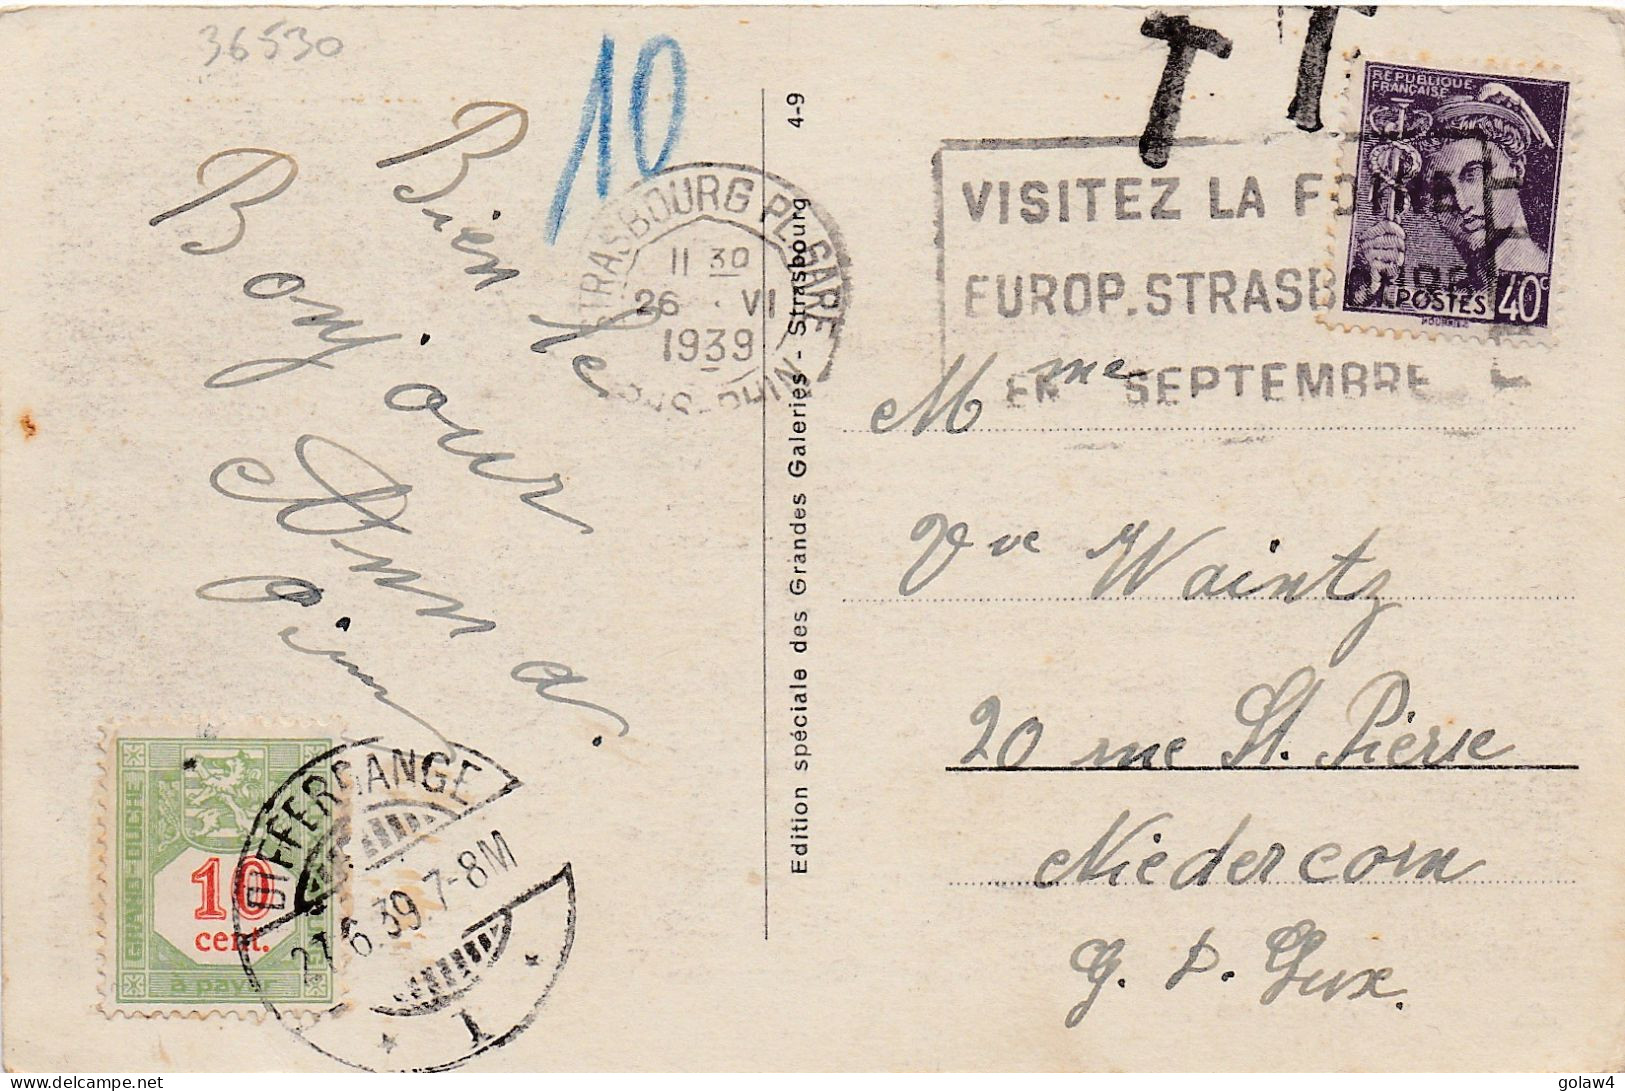 36530
10
T T
Bien le
Bonjour
Anna.
STRASBOURG PL. GARE
11 30
26 · VI
1939
BAS-RHIN
VISITEZ LA FOIRE
EUROP. STRASBOURG
EN SEPTEMBRE
REPUBLIQUE
FRANÇAISE
POSTES 40c
4-9
Edition spéciale des Grandes Galeries - Strasbourg
Mme
Vve Waintz
20 rue St. Pierre
Niedercorn
G. D. Lux.
GRAND-DUCHE
10
cent.
à payer
DIFFERDANGE
27.6.39.7-8M
1
golaw4